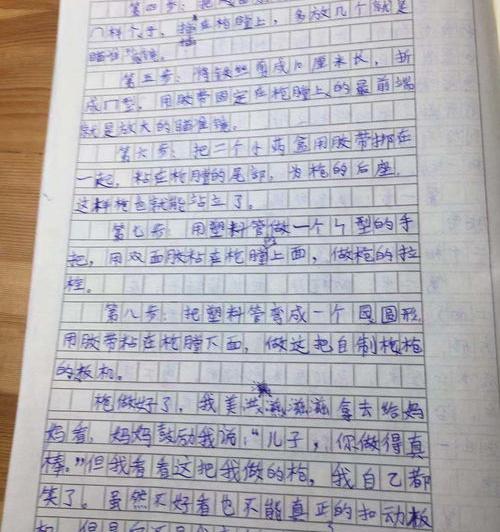 第四步：把
门样个子，捁在枪膛上，多放几个就是
瞄准镜。
第五步：将铁丝剪成10厘米长，折
成门型，用胶带固定在枪膛上的最前端
就是放大的瞄准镜。
第六步：把二个小药盒用胶带绑在
一起，粘在枪膛的尾部，为枪的后座，
这样枪也就能站立了。
第七步：用塑料管做一个ㄣ型的手
把，用双面胶粘在枪膛上面，做枪的拉
栓。
第八步：把塑料管弯成一个圆形，
用胶带粘在枪膛下面，做这把自制枪枪
的板机。
枪做好了，我美滋滋滋拿去给妈
妈看，妈妈鼓动我说：“儿子，你做得真
棒。”但我看看这把我做的枪，我自己都
笑了。虽然不好看也不能真正的扣动板
机，但是